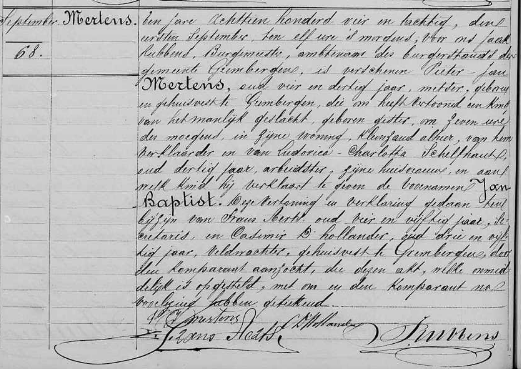 September
68.
Mertens.
Ten jare achttien honderd vier en tachtig, den
eersten September ten elf ure 's morgens, voor ons Jaak
Rubbens, Burgemeester, ambtenaar des burgerstands der
gemeente Grimbergen, is verschenen Pieter-Jan
Mertens, oud vier en dertig jaar, metser, geboren
en gehuisvest te Grimbergen, die ons heeft vertoond een kind
van het manlijk geslacht, geboren gister, om zeven ure
des morgens, in zijne woning, alhier, van hem
verklaarder en van Ludovica-Charlotta Schelfhout,
oud dertig jaar, arbeidster, zijne huisvrouw, en aan
welk kind hij verklaart te geven de voornamen Jan
Baptist. Deze vertooning en verklaring gedaan
bijzijn van Frans Aerts, oud vier en vijftig jaar,
en Casimir D'hollander, oud drie en
tig jaar, veldwachter, gehuisvest te Grimbergen, door
den komparant aanzocht, die dezen akt, welke
delijk is opgesteld, met ons en den komparant na
voorlezing hebben geteekend.
Mertens
Frans Aerts
D'Hollander
Rubbens